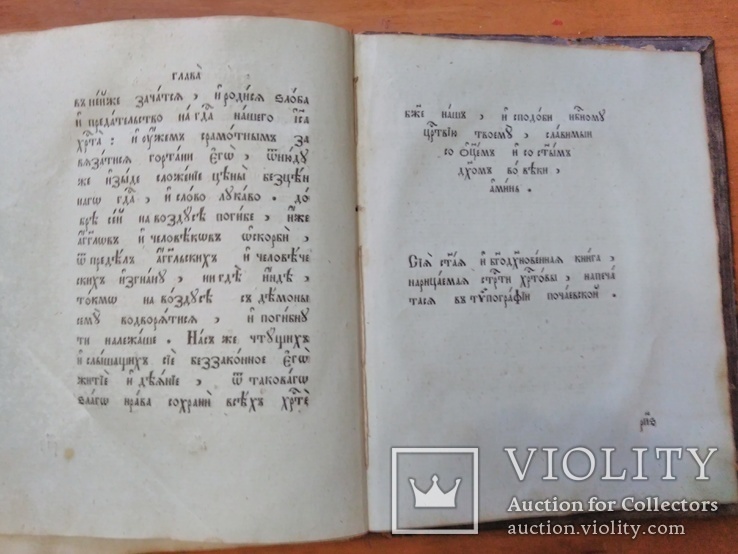 ГЛАВА̀
въ не́йже зача́тсѧ, и҆ роди́сѧ ѕло́ба
и҆ преда́тельство на гд҇а на́шего і҆са
хр҇та̀: и҆ ѹ҆́жемъ срамо́тнымъ за
вѧза́тисѧ горта́ни є҆гѡ̀, ѿню́дꙋ
же и҆зы́де сложе́нїе цѣны̀ безцѣ́н
нагѡ гд҇а, и҆ сло́во лꙋка́во. до́
брѣ се́й на во́здꙋсѣ поги́бе, и҆́же
а҆́гг҃лѡвъ и҆ человѣ́кѡвъ ѡ҆скорбѝ,
ѿ предѣ́лъ а҆́гг҃льскихъ и҆ человѣ́че
скихъ и҆згна́нꙋ, ни гдѣ̀ и҆́ндѣ,
то́кмѡ на во́здꙋсѣ съ де́мѡны
семꙋ̀ водворѧ́тисѧ, и҆ поги́бнꙋ
ти належа́ше. На́съ же чтꙋ́щихъ
и҆ слы́шащихъ сїѐ беззако́нное є҆гѡ̀
житїѐ и҆ дѣѧ́нїе, ѿ такова́гѡ
ѕла́гѡ нра́ва сохранѝ всѣ́хъ хр҇тѐ
бж҃е на́шъ, и҆ сподо́би нб҇номꙋ
цр҇твїю твоемꙋ̀, сла́вимыи
со ѻ҆ц҃е́мъ и҆ со ст҃ы́мъ
дх҃омъ во вѣ́ки,
а҆ми́нь.
Сїѧ̀ ст҃а́ѧ и҆ бг҃одх҃нове́ннаѧ кни́га,
нарица́емаѧ стр҇ти хр҇то́вы, напеча́
тасѧ въ тѷпогра́фїи поча́евской.
рн҃ѳ
VIOLITY
Auction for Collectors
auction.violity.com